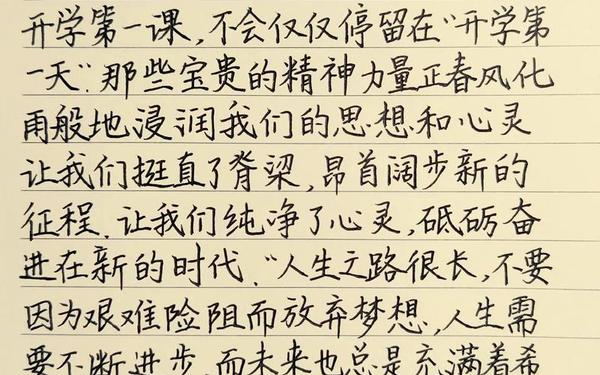 开学第一课,不会仅仅停留在“开学第
一天”.那些宝贵的精神力量正春风化
雨般地浸润我们的思想和心灵
让我们挺直了脊梁,昂首阔步新的
征程.让我们纯净了心灵,砥砺奋
进在新的时代.“人生之路很长,不要
因为艰难险阻而放弃梦想,人生需
要不断进步,而未来也总是充满着希